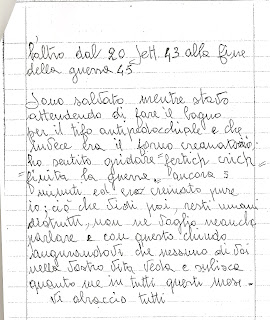 l'altro dal 20 Sett. 43 alla fine
della guerra 45
Sono saltato mentre stavo
attendendo di fare il bagno
per il tifo antipidocchiale e che
invece era il forno crematorio.
ho sentito gridare "fertich crich
finita la guerra" ancora 5
minuti ed ero cremato pure
io; ciò che vidi poi, resti umani
distrutti, non ne voglio neanche
parlare e con questo chiudo
augurandovi che nessuno di voi
nella vostra vita veda e subisca
quanto me in tutti questi mesi.
Vi abbraccio tutti